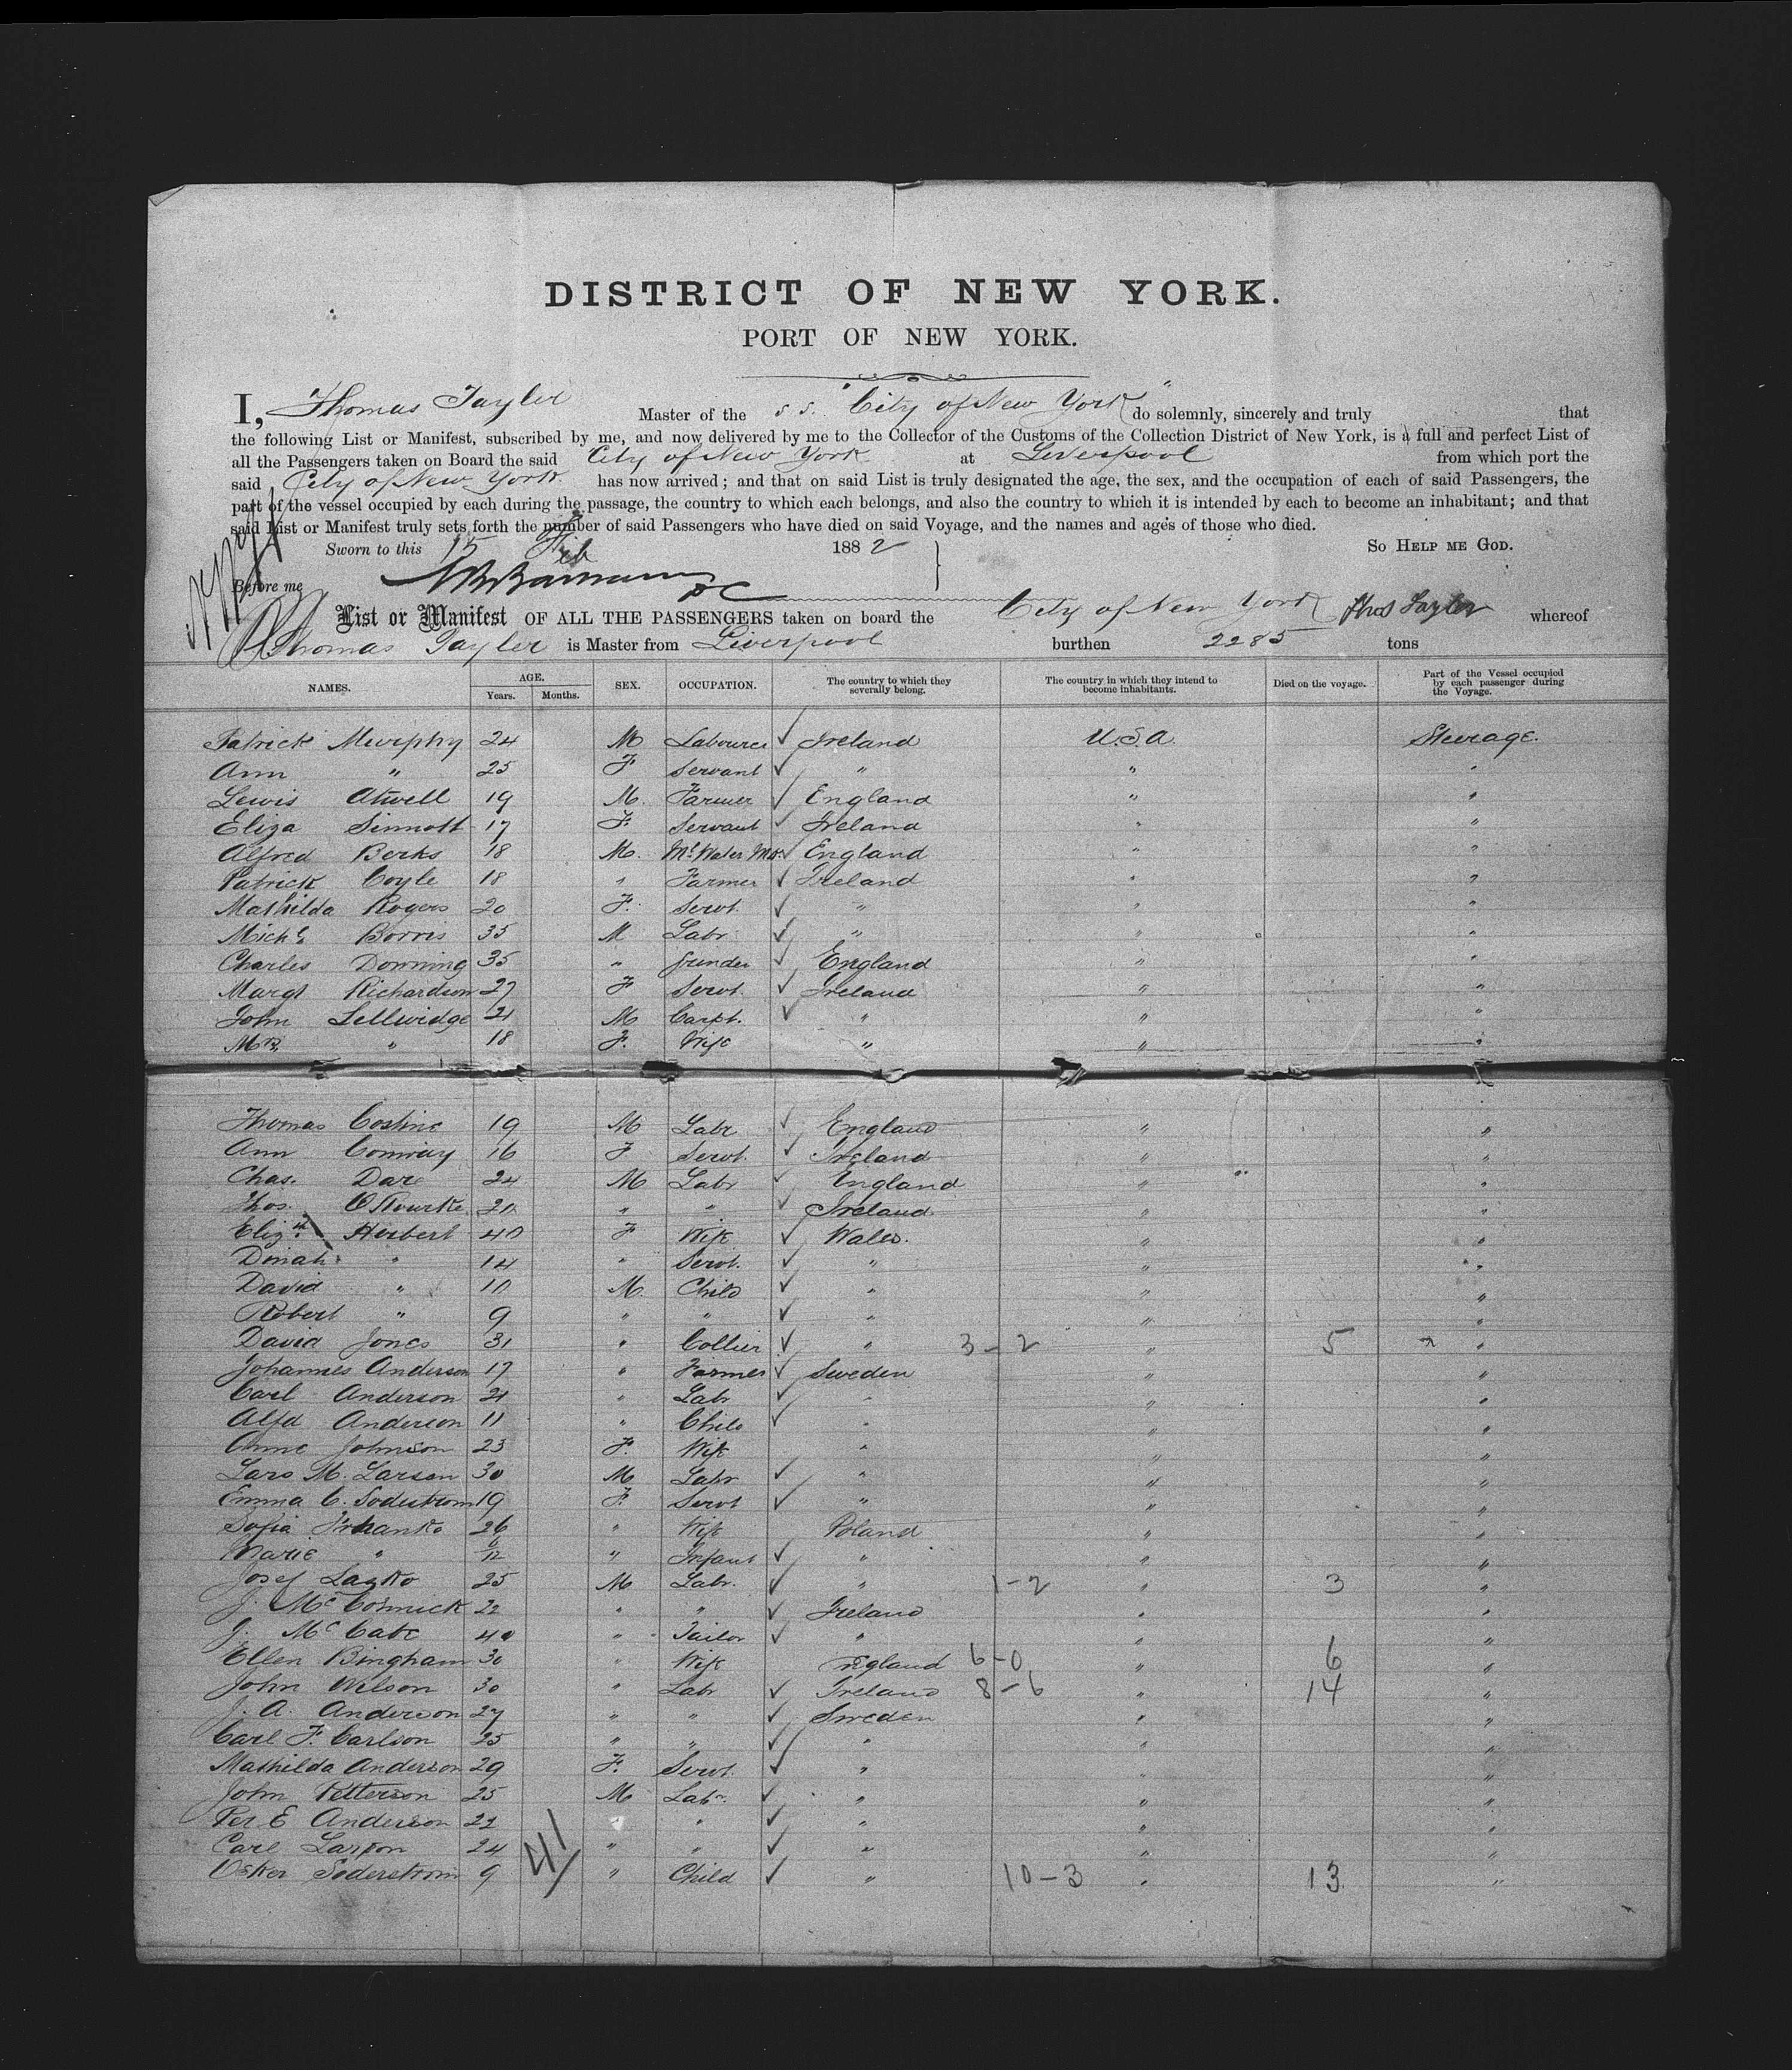 DISTRICT OF NEW YORK.
PORT OF NEW YORK.
I, Thomas Tayler Master of the s.s. "City of New York" do solemnly, sincerely and truly that
the following List or Manifest, subscribed by me, and now delivered by me to the Collector of the Customs of the Collection District of New York, is a full and perfect List of
all the Passengers taken on Board the said City of New York at Liverpool from which port the
said City of New York has now arrived; and that on said List is truly designated the age, the sex, and the occupation of each of said Passengers, the
part of the vessel occupied by each during the passage, the country to which each belongs, and also the country to which it is intended by each to become an inhabitant; and that
said List or Manifest truly sets forth the number of said Passengers who have died on said Voyage, and the names and ages of those who died.
Sworn to this 15 Feb 1882 } So Help me God.
Before me
List or Manifest OF ALL THE PASSENGERS taken on board the City of New York Thos Tayler whereof
Thomas Tayler is Master from Liverpool burthen 2285 tons
NAMES. AGE. Years. Months. SEX. OCCUPATION. The country to which they severally belong. The country in which they intend to become inhabitants. Died on the voyage. Part of the Vessel occupied by each passenger during the Voyage.
Patrick Murphy 24 M Labourer ✓ Ireland U.S.A. Steerage.
Ann " 25 F Servant ✓ " " "
Lewis Atwell 19 M. Farmer ✓ England " "
Eliza Sinnott 17 F. Servant ✓ Ireland " "
Alfred Berks 18 M. England " "
Patrick Coyle 18 " Farmer ✓ Ireland " "
Mathilda Rogers 20 F. Servt. ✓ " " "
Michl Borris 35 M Labr ✓ " " "
Charles Downing 35 " Grinder ✓ England " "
Margt Richardson 27 F Servt. ✓ Ireland " "
John Lellwidge 21 M Carpt. ✓ " " "
Mrs. " 18 F. Wife " " "
Thomas Costine 19 M Labr ✓ England " "
Ann Conway 16 F Servt. ✓ Ireland " "
Chas. Dare 24 M Labr ✓ England " "
Thos. O'Rourke 20 " " ✓ Ireland " "
Elizth Herbert 40 F Wife ✓ Wales. " "
Dinah " 14 " Servt. ✓ " " "
David " 10 M. Child ✓ " " "
Robert " 9 " " ✓ " " "
David Jones 31 " Collier ✓ " 3-2 " 5 "
Johannes Anderson 17 " Farmer ✓ Sweden " "
Carl Anderson 21 " Labr ✓ " " "
Alfd Anderson 11 " Child ✓ " " "
Anne Johnson 23 F. Wife " " "
Lars M. Larson 30 M Labr ✓ " " "
Emma C. Soderstrom 19 F. Servt ✓ " " "
Sofia 26 " Wife Poland " "
Marie " 6/12 " Infant ✓ " " "
Josef Lazko 25 M Labr. ✓ " 1-2 " 3 "
J. McCormick 22 " " ✓ Ireland " "
J. McCabe 40 " Tailor ✓ " " "
Ellen Bingham 30 " Wife England 6-0 " 6 "
John Wilson 30 " Labr ✓ Ireland 8-6 " 14 "
J. A. Anderson 27 " " ✓ Sweden " "
Carl F. Carlson 25 " " ✓ " " "
Mathilda Anderson 29 F. Servt. ✓ " " "
John Petterson 25 M Labr. ✓ " " "
Per E Anderson 22 " ✓ " " "
Carl Larson 24 " " ✓ " " "
Osker Soderstrom 9 41 " Child ✓ " 10-3 " 13 "